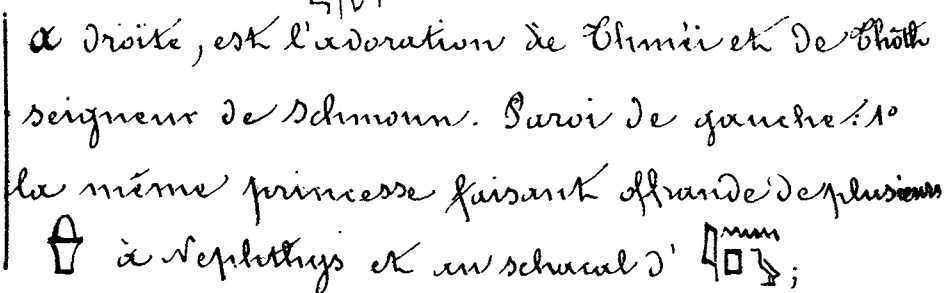 à droite, est l'adoration de Thméi et de Thôth
seigneur de Schmoun. Paroi de gauche : 1°
la même princesse faisant offrande de plusieurs
à Nephthys et au schacal d' ;